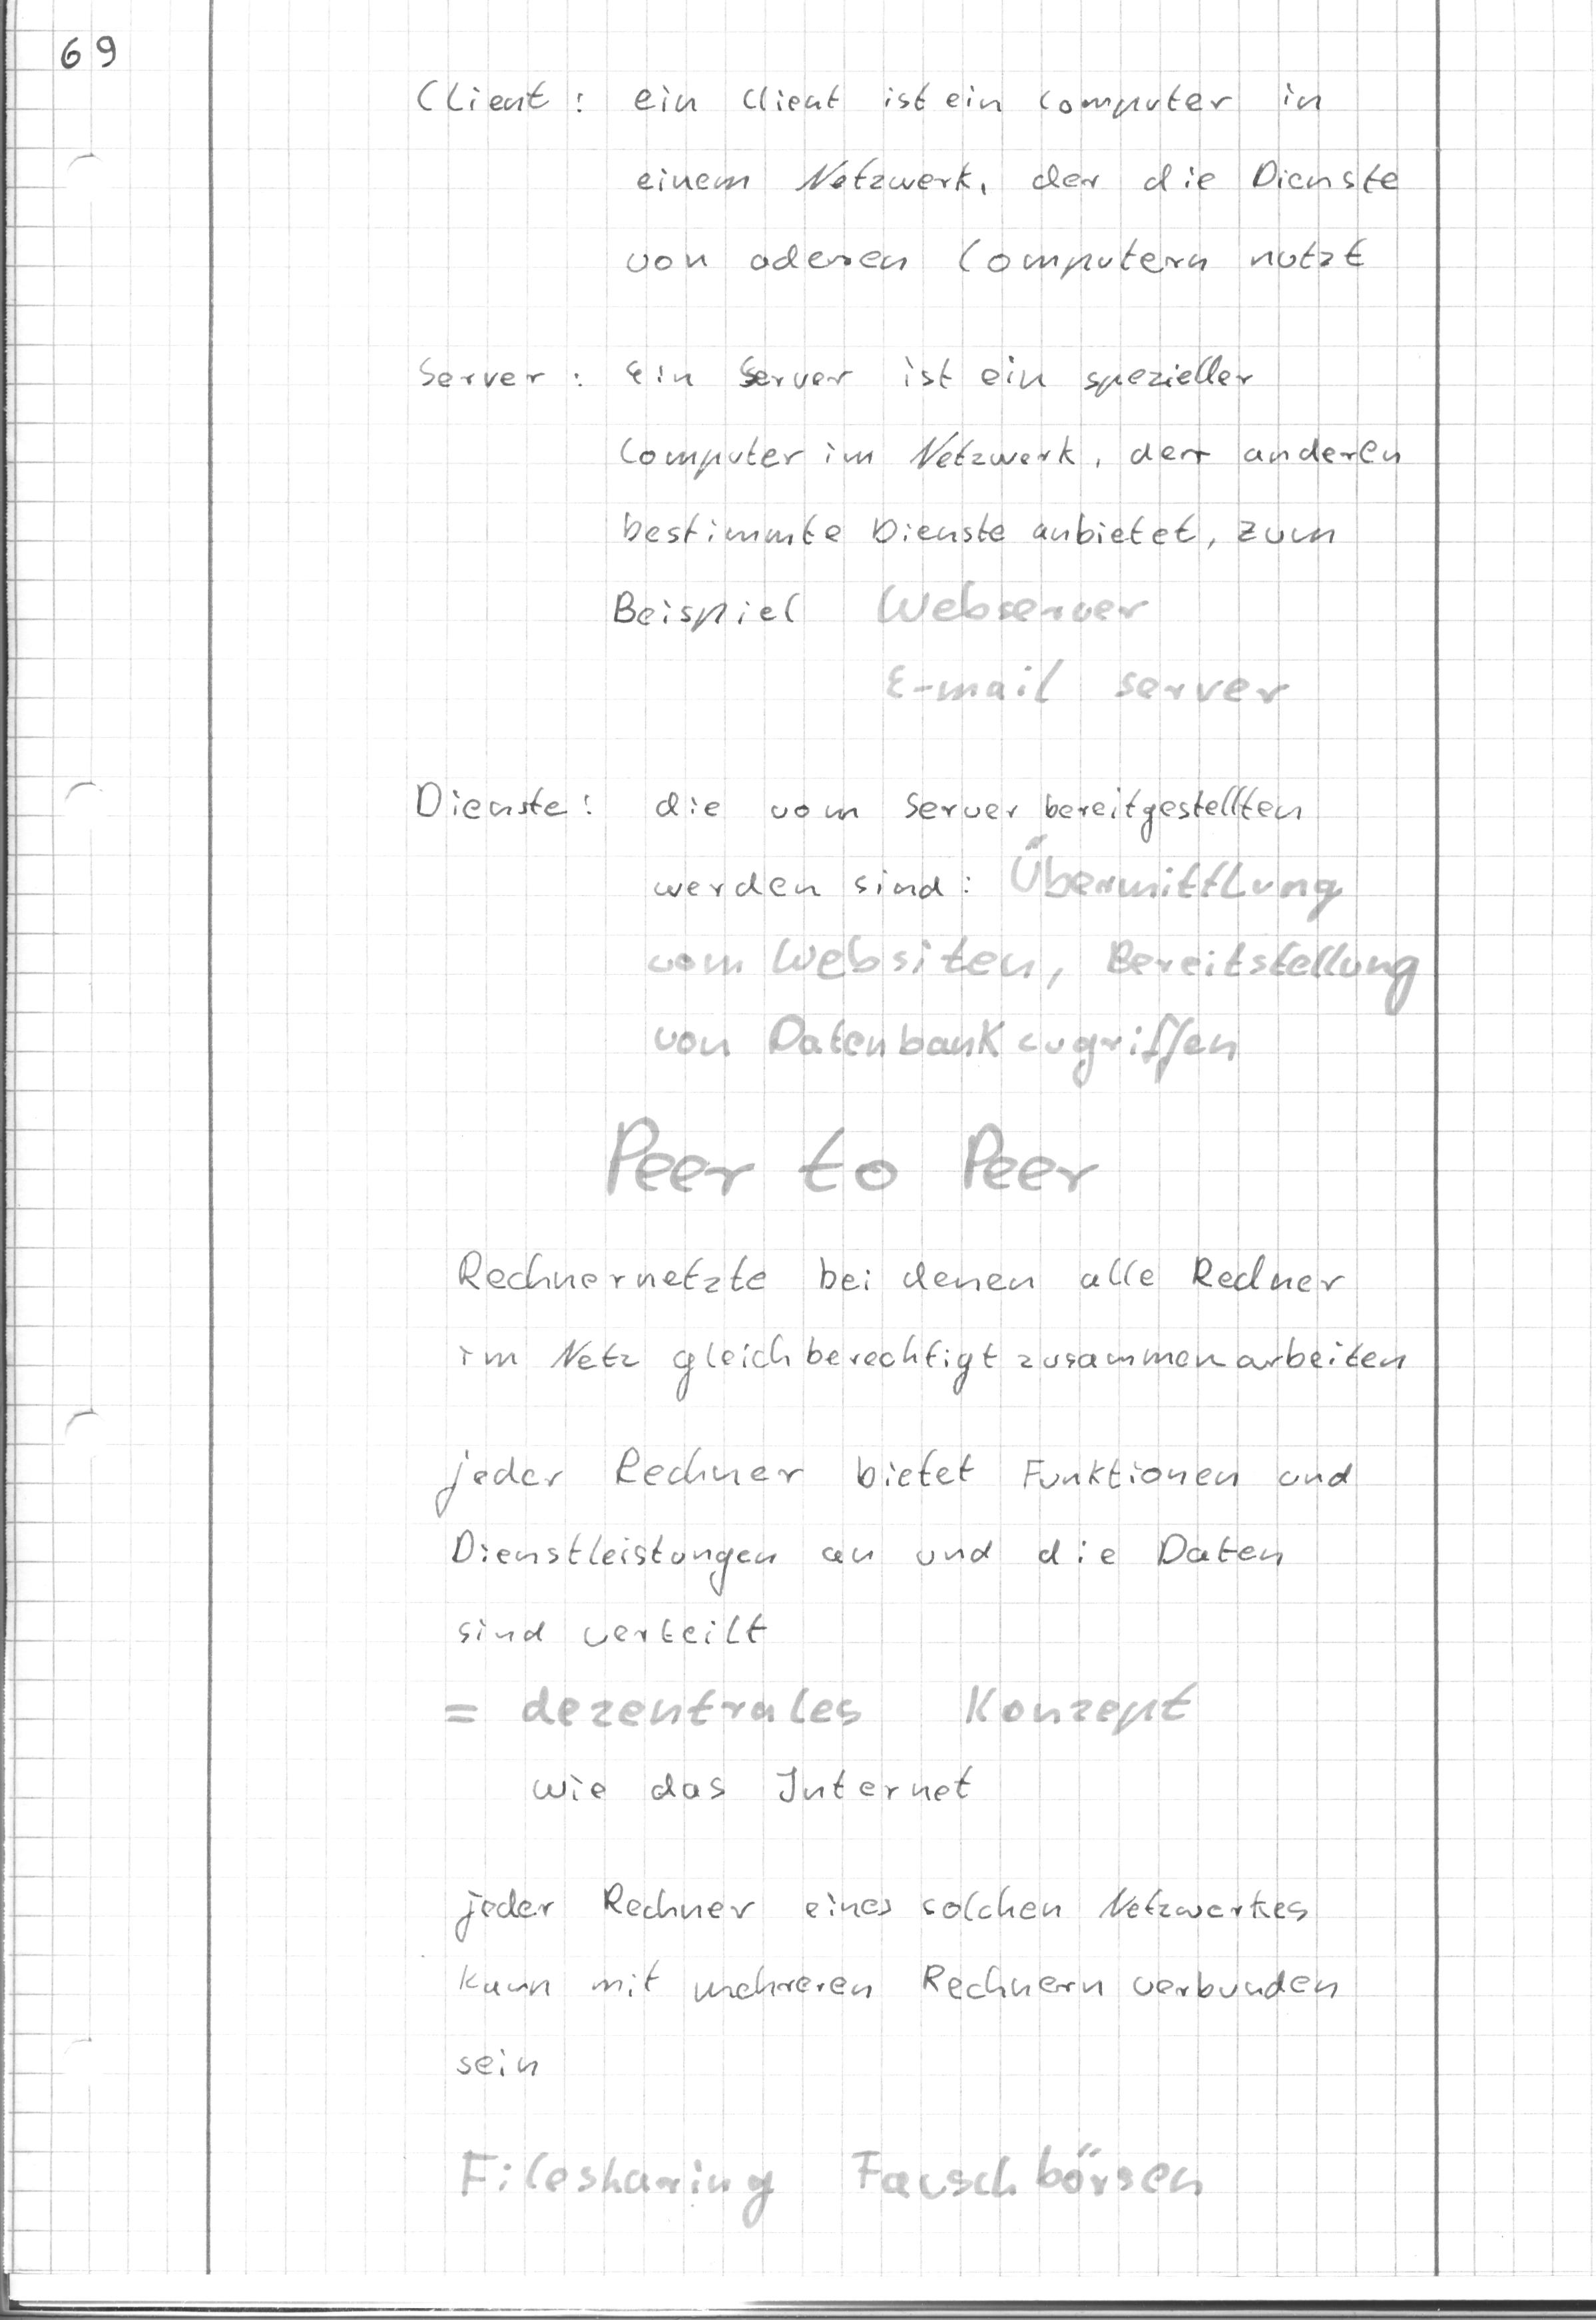 69
Client: ein Client ist ein Computer in
einem Netzwerk, der die Dienste
von aderen Computern nutzt
Server: ein Server ist ein spezieller
Computer im Netzwerk, der anderen
bestimmte Dienste anbietet, zum
Beispiel Webserver
E-mail server
Dienste: die vom Server bereitgestellten
werden sind: Übermittlung
vom Websiten, Bereitstellung
von Datenbankzugriffen
Peer to Peer
Rechnernetzte bei denen alle Rechner
im Netz gleichberechtigt zusammenarbeiten
jeder Rechner bietet Funktionen und
Dienstleistungen an und die Daten
sind verteilt
= dezentrales Konzept
wie das Internet
jeder Rechner eines solchen Netzwerkes
kann mit mehreren Rechnern verbunden
sein
Filesharing Tauschbörsen